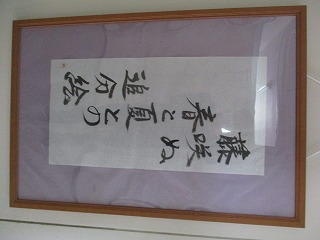 藤咲ぬ
春と夏との
追分絵